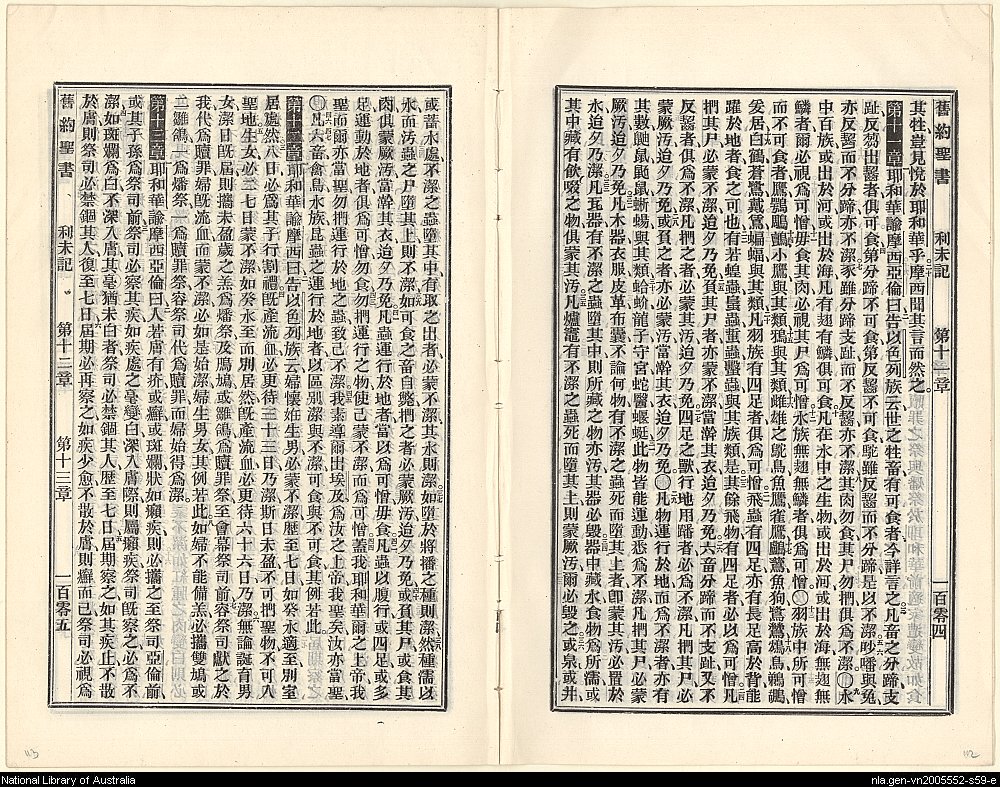 舊約聖書 利未記 第十一章 一百零四
其牲豈見悅於耶和華乎摩西聞其言而然之
第十一章耶和華諭摩西亞倫曰告以色列族云世之牲畜有可食者今詳言之凡畜之分蹄支
趾反芻出齧者俱可食第分蹄不可食第反齧不可食駝雖反齧而不分蹄是以不潔
亦反齧而不分蹄亦不潔豕雖分蹄支趾而不反齧亦不潔其肉勿食其尸勿捫俱為不潔〇水
中百族或出於河或出於海凡有翅有鱗俱可食凡在水中之生物或出於河或出於海無翅無
鱗者爾必視為可憎毋食其肉必視其尸為可憎水族無翅無鱗者俱為可憎〇羽族中所可憎
而不可食者鷹
居白鶴蒼鷺戴鵀蝙蝠與其類凡羽族有四足者俱為可憎飛蟲有四足亦有長足高於背能
躍於地者食之可也有若蝗蟲
與其族類是其餘飛物有四足者必以為可憎凡
捫其尸必蒙不潔迨夕乃免負其尸者亦蒙不潔當澣其衣迨夕乃免六畜分蹄而不支趾又不
反齧者俱為不潔凡捫之者必蒙其汚迨夕乃免四足之獸行地用蹯者必為不潔凡捫其尸必
蒙厥汚迨夕乃免或負之者亦必蒙汚當澣其衣迨夕乃免〇凡物運行於地而為不潔者亦有
其數鼴鼠鼫鼠蜥蜴與其類蛤蚧龍子守宮蛇醫蝘蜓此物皆能運動悉為不潔凡捫其尸必蒙
厥汚迨夕乃免凡木器衣服皮革布囊不論何物有不潔之蟲死而墮其上者卽蒙其汚必置於
水迨夕乃潔凡瓦器有不潔之蟲墮其中則所藏之物亦汚其器必毀器中藏水食物為所濡或
其中藏有飲啜之物俱蒙其汚凡爐竈有不潔之蟲死而墮其上則蒙厥汚爾必毀之或泉或井
或蓄水處不潔之蟲墮其中有取之出者必蒙不潔其水則潔如墮於將播之種則潔然種濡以
水而汚蟲之尸墮其上則不潔如可食之畜自斃捫之者必蒙厥汚迨夕乃免或負其尸或食其
肉俱蒙厥汚當澣其衣迨夕乃免凡蟲運行於地者當以為可憎毋食凡蟲以腹行或四足或多
足運動於地者俱為可憎勿食勿捫運行之物使己蒙不潔而為可憎蓋我耶和華爾之上帝我
聖而爾亦當聖勿捫運行於地之蟲致己不潔我素導爾出埃及為汝之上帝我聖矣汝亦當聖
〇凡六畜禽鳥水族昆蟲之運行於地者以區別潔與不潔可食與不可食其例若此
第十二章耶和華諭摩西曰告以色列族云婦懷姙生男必蒙不潔歷至七日如癸水適至別室
居處然八日必為其子行割禮旣產流血必更待三十三日乃潔斯日未盈不可捫聖物不可入
聖地生女必二七日蒙不潔如癸水至而別居然旣產流血必更待六十六日乃潔無論誕育男
女潔日旣屆則攜未盈歲之羔為燔祭及鴈鳩或雛鴿為贖罪祭至會幕祭司前容祭司獻之於
我代為贖罪婦旣流血而蒙不潔必如是始潔婦生男女其例若此如婦不能備羔必攜雙鳩或
二雛鴿一為燔祭一為贖罪祭容祭司代為贖罪而婦始得為潔
第十三章耶和華諭摩西亞倫曰人若膚有疥或癬或斑斕狀如癩疾則必攜之至祭司亞倫前
或其子孫為祭司前祭司必察其疾如疾處之毫變白深入膚際則屬癩疾祭司旣察之必為不
潔如斑斕為白不深入膚其毫猶未白者祭司必禁錮其人歷至七日屆期察之如其疾止不散
於膚則祭司必禁錮其人復至七日屆期必再察之如疾少愈不散於膚則癬而已祭司必視為
舊約聖書 利未記 第十二章 第十三章 一百零五
113
112
National Library of Australia
nla.gen-vn2005552-s59-e